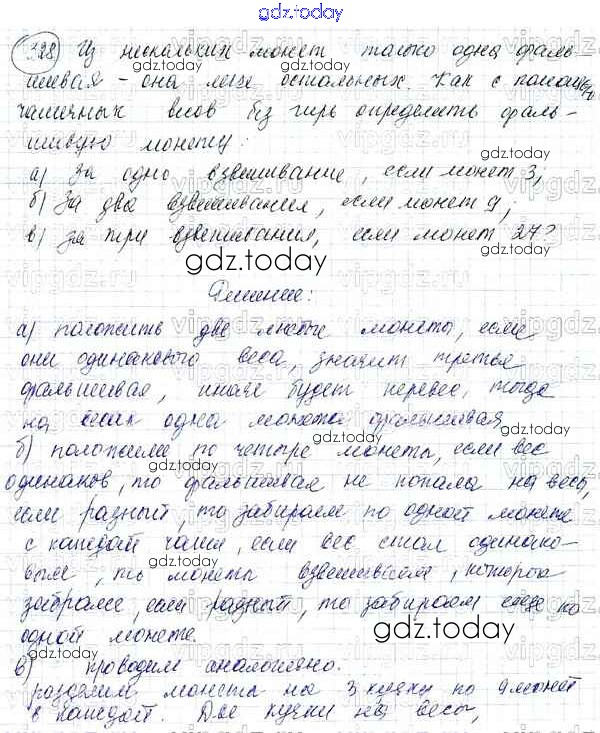 gdz.today
328) Из нескольких монет только одна фаль-
шивая - она легче остальных. Как с помощью
чашечных весов без гирь определить фаль-
шивую монету:
gdz.today
а) За одно взвешивание, если монет 3,
б) За два взвешивания, если монет 9;
в) за три взвешивания, если монет 27?
gdz.today
Решение:
а) положить две любые монеты, если
они одинакового веса, значит третья
фальшивая, иначе будет перевес, тогда
на одна монета фальшивая
gdz.today
б) положите по четыре монеты, если вес
одинаков, то фальшивая не попала на весы,
если разный, то забираем по одной монете
с каждой чаши, если вес стал одинако-
вым, то монеты взвешиваем, которые
забрали, если разный, то забираем еще по
одной монете.
gdz.today
в) проводим аналогично.
разделим монеты на 3 кучки по 9 монет
в каждой. Две кучки на весы,
vipgdz.ru